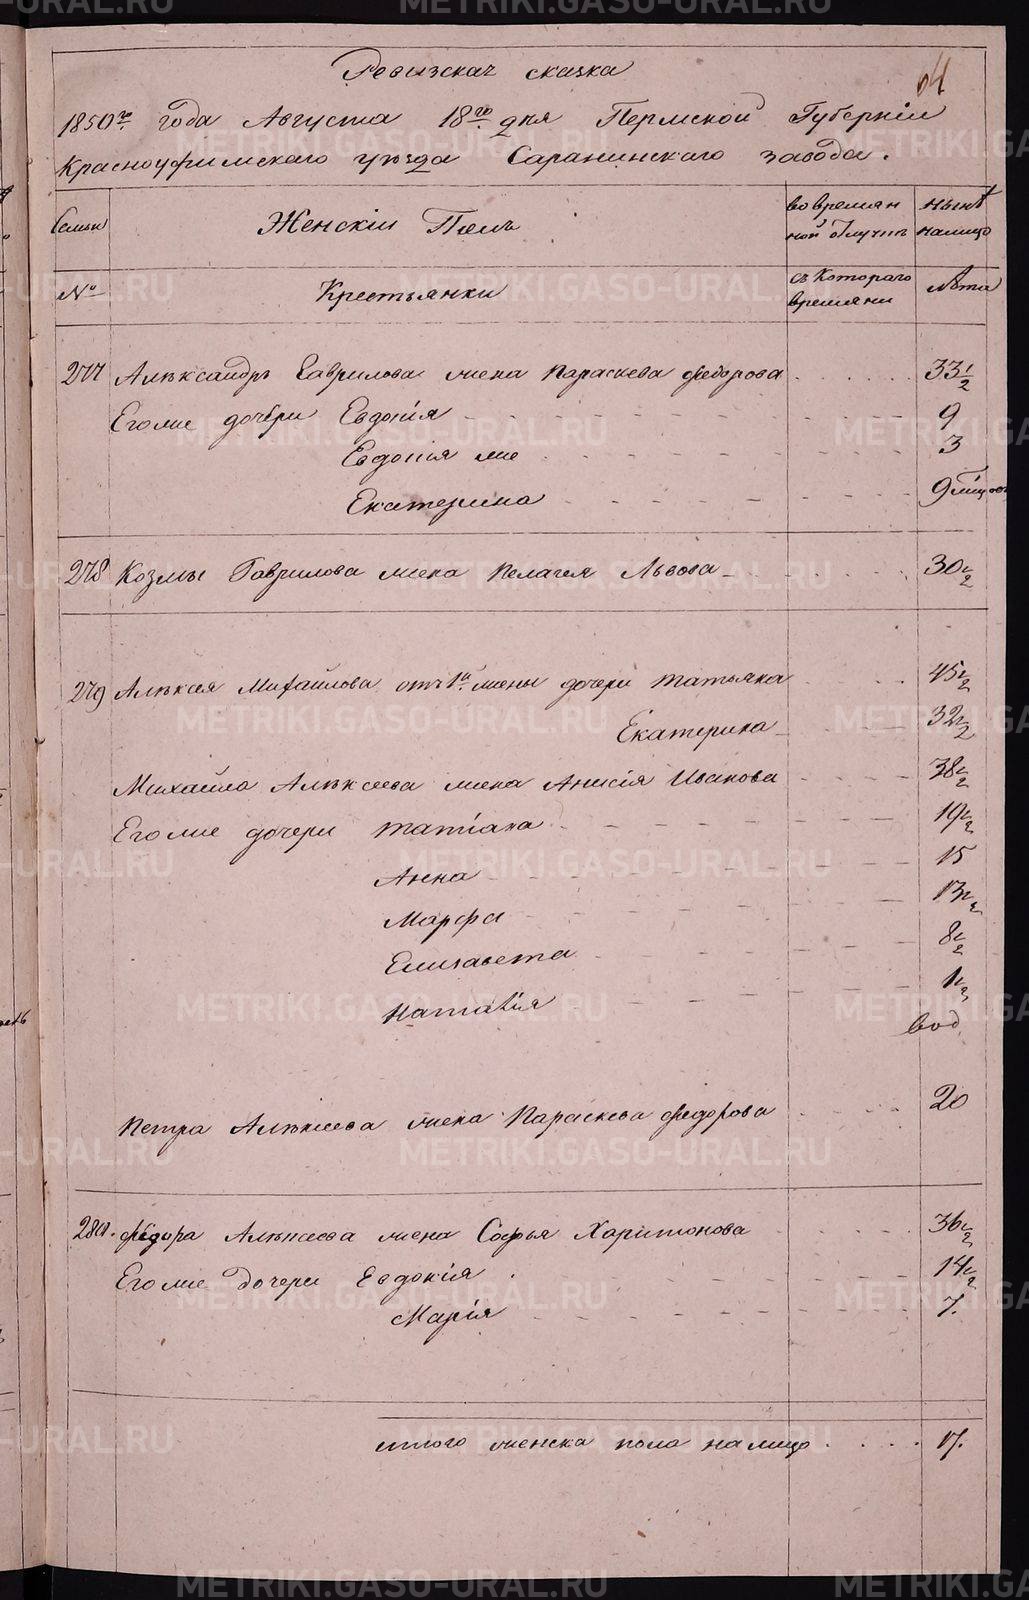 Ревизская сказка
64
1850го года Августа 18го дня Пермской Губерніи
Красноуфимскаго уѣзда Саранинскаго завода.
Семьи Женскій Полъ во времян ной отлучкѣ нынѣ налицо
№ Крестьянки съ Котораго времяни Лѣта
277 Алѣксандръ Гаврилова жена Параскева Федорова 33 1/2
Его же дочери Евдокія 9
Евдокія же 3
Екатерина 9 мѣсяц
278 Козмы Гаврилова жена Пелагея Львова 30 1/2
279 Алѣксея Михайлова отъ 1й жены дочери Татьяна 45 1/2
Екатерина 32 1/2
Михайло Алѣксеева жена Анисія Иванова 38 1/2
Его же дочери Татіана 19 1/2
Анна 15
Марфа 13 1/2
Елизавета 8 1/2
Наталія 1 1/2
год
Петра Алѣксеева жена Параскева Федорова 20
280. Федора Алѣксеева жена Софья Харитонова 36 1/2
Его же дочери Евдокія 14 1/2
Марія 7.
итого женска пола налицо 17.
METRIKI.GASO-URAL.RU